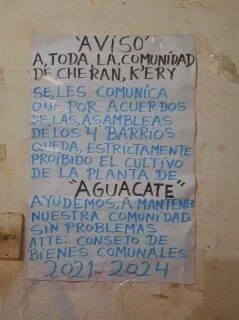 "AVISO"
A, TODA, LA, COMUNIDAD
DE CHERAN, K'ERY
SE, LES COMUNICA
QUE POR ACUERDOS
DE LAS, ASAMBLEAS
DE LOS 4 BARRIOS
QUEDA, ESTRICTAMENTE
PROIBIDO EL CULTIVO
DE LA PLANTA DE
"AGUACATE"
AYUDEMOS, A MANTENER
NUESTRA COMUNIDAD.
SIN PROBLEMAS
ATTE: CONSEJO DE
BIENES COMUNALES
2021-2024